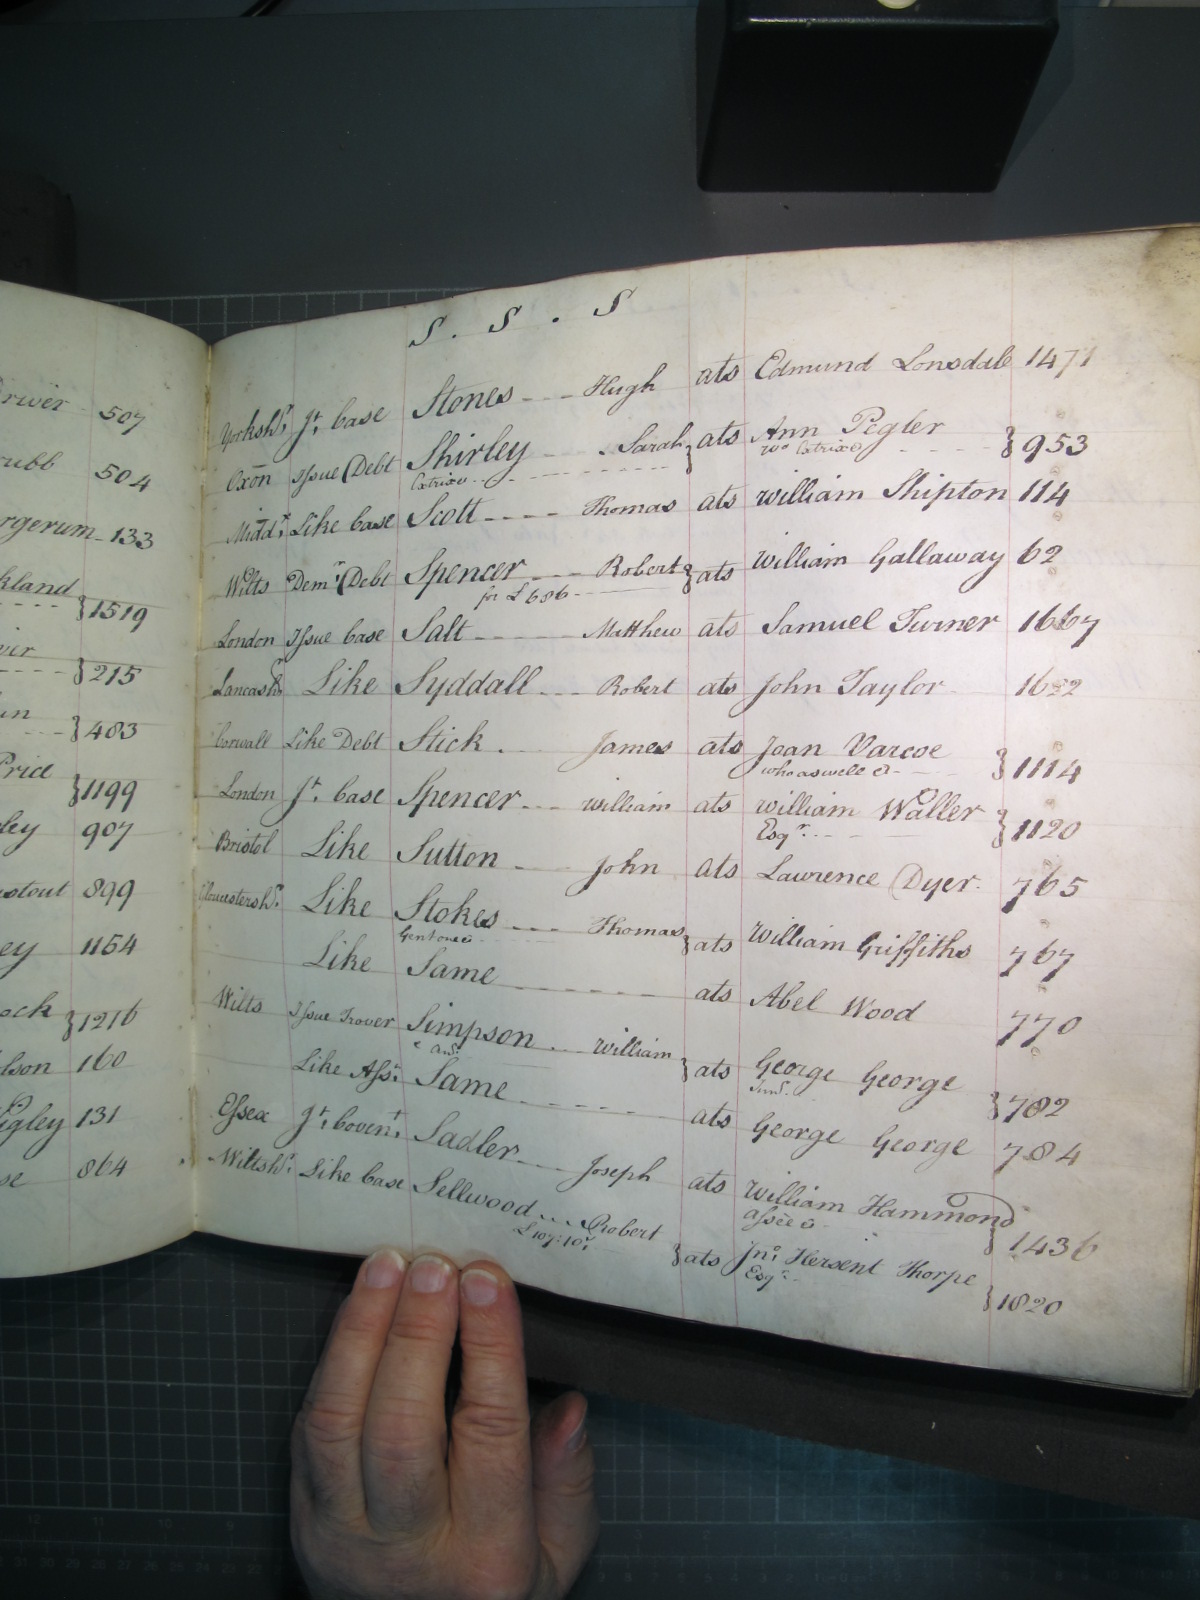 river 507
rubb 504
rgerum 133
kland
}1519
}215
}483
Price
}1199
ley 907
899
ey 1154
ock }1216
lson 160
igley 131
se 864
S . S . S
Yorksh.r J.t Case Stones Hugh ats Edmund Lonsdale 1471
Oxōn Issue Debt Shirley Sarah } ats Ann Pegler
Extrix }953
Midd.x Like Case Scott Thomas ats William Shipton 114
Wilts Dem.r Debt Spencer Robert } ats William Gallaway 62
for £686
London Issue Case Salt Matthew ats Samuel Turner 1667
Lancash.r Like Syddall Robert ats John Taylor 1622
Cornwall Like Debt Stick James ats Joan Varcoe
who as well &c }1114
London J.t Case Spencer William ats William Waller
Esq.r }1120
Bristol Like Sutton John ats Lawrence Dyer 765
Gloucestersh.r Like Stokes Thomas } ats William Griffiths 767
Gent one &c
Like Same ats Abel Wood 770
Wilts Issue Trover Simpson William } ats George George
Jun.r }782
Like Ass.t Same ats George George 784
Essex J.t Coven.t Sadler Joseph ats William Hammond
assēe &c }1436
Wiltsh.r Like Case Sellwood Robert } ats Jn.o Hersent Thorpe
£107:10.s Esq.r }1820